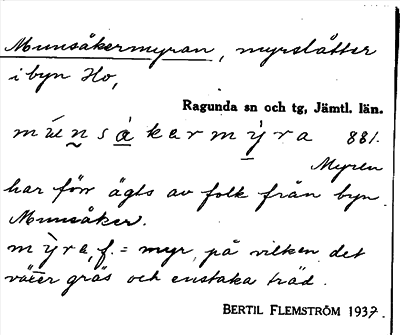 Munsåkermyran, myrslåtter
i byn Ho,
Ragunda sn och tg, Jämtl. län.
múnsåkermỳra 881.
Myren
har förr ägts av folk från byn
Munsåker.
mỳra, f. = myr, på vilken det
växer gräs och enstaka träd.
BERTIL FLEMSTRÖM 1937.